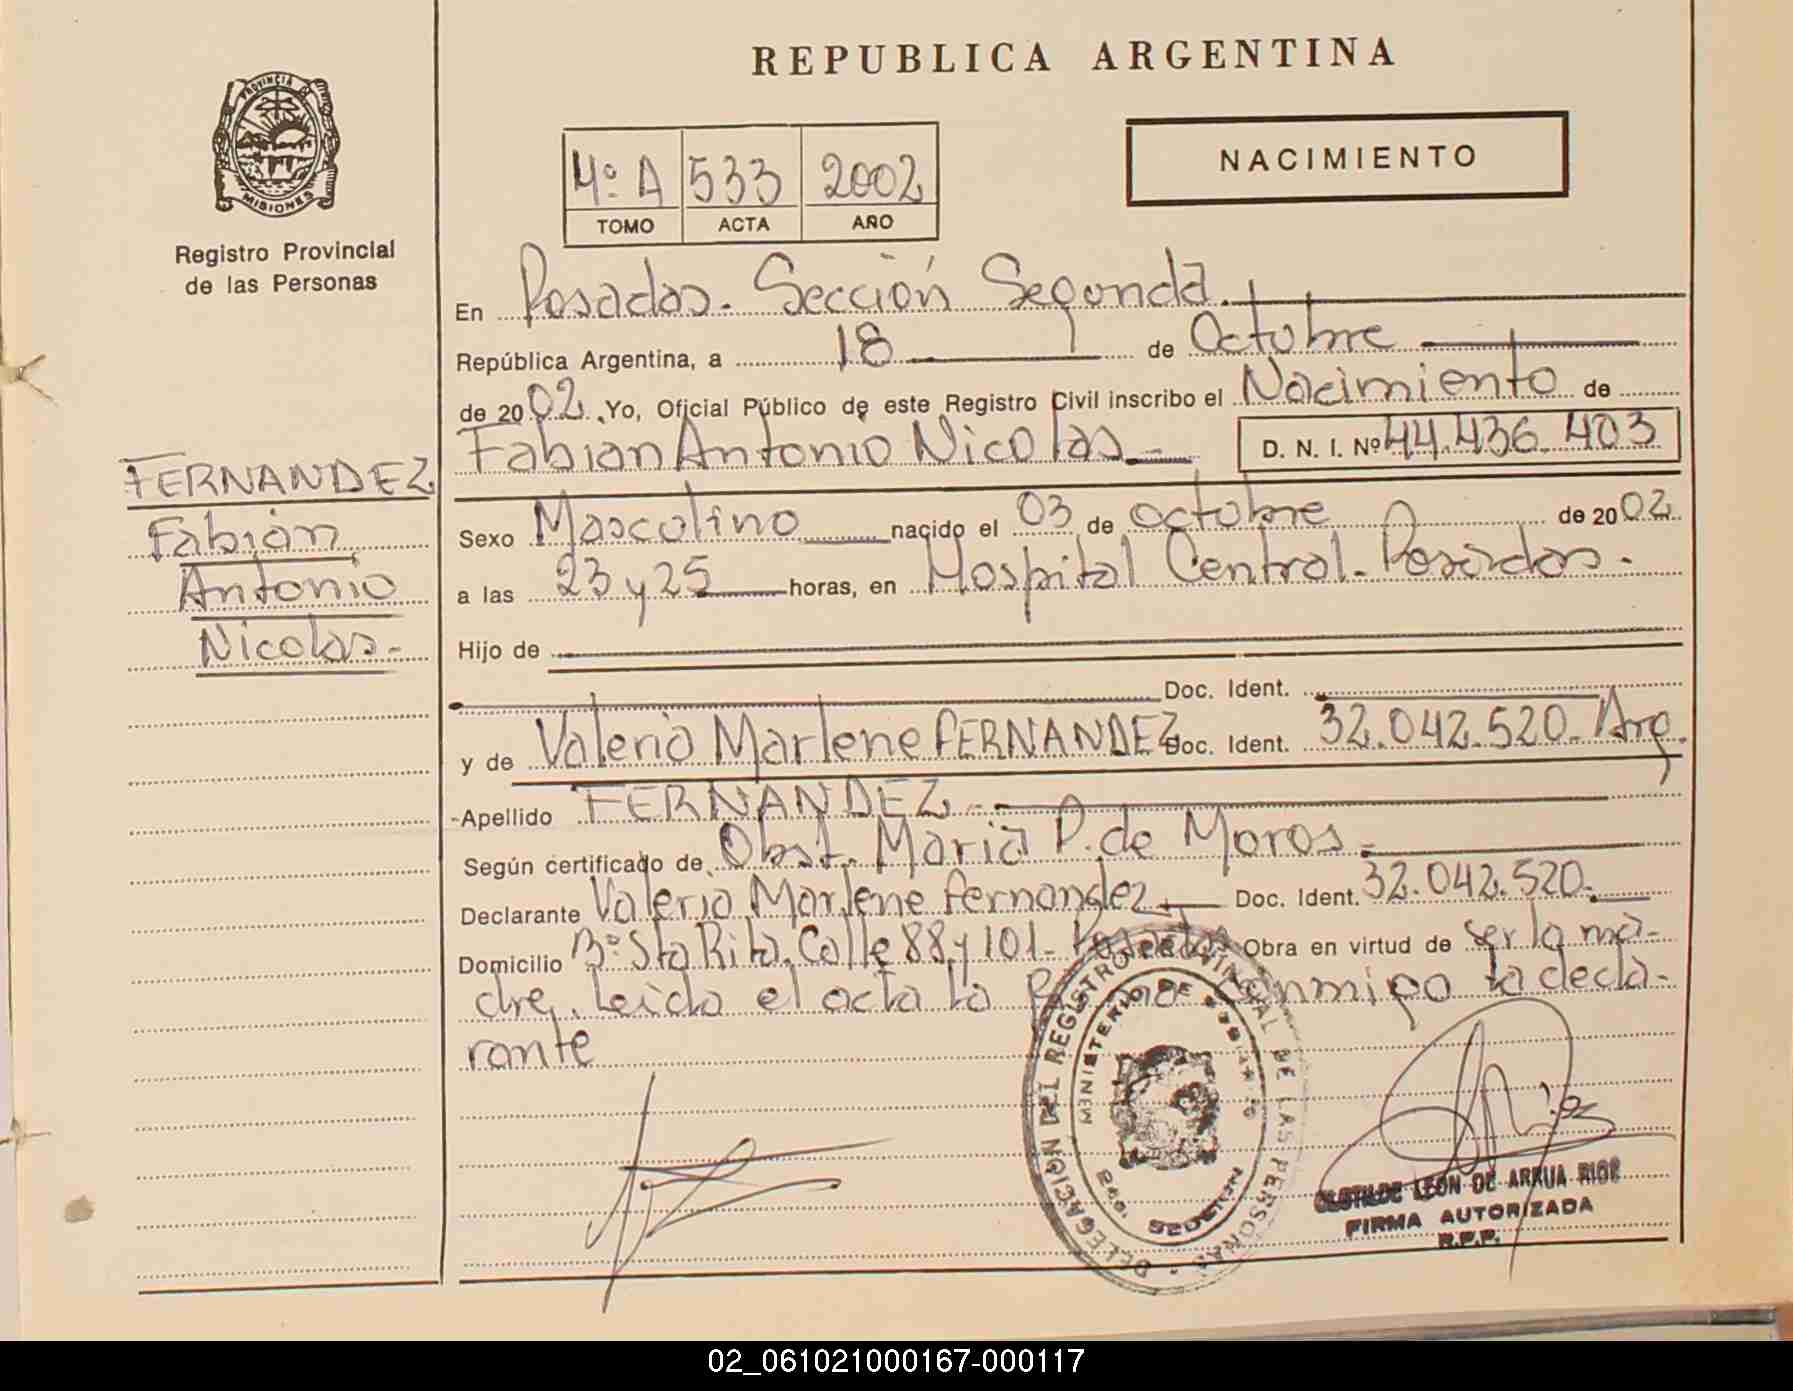 REPUBLICA ARGENTINA
PROVINCIA
MISIONES
Registro Provincial
de las Personas
NACIMIENTO
4º A 533 2002
TOMO ACTA AÑO
FERNANDEZ
Fabián
Antonio
Nicolas.-
En Posadas. Sección Segunda.
República Argentina, a 18 de Octubre
de 2002. Yo, Oficial Público de este Registro Civil inscribo el Nacimiento de
Fabian Antonio Nicolas.- D. N. I. Nº 44.436.403
Sexo Masculino nacido el 03 de octubre de 2002
a las 23 y 25 horas, en Hospital Central. Posadas.
Hijo de
Doc. Ident.
y de Valeria Marlene FERNANDEZ Doc. Ident. 32.042.520. Arg.
Apellido FERNANDEZ.-
Según certificado de Obst. Maria P. de Moros.
Declarante Valeria Marlene Fernandez Doc. Ident. 32.042.520.
Domicilio Bº Sta Rita. Calle 88 y 101. Posadas Obra en virtud de ser la ma-
dre. Leida el acta la firma conmigo la decla-
rante
DELEGACION DEL REGISTRO PROVINCIAL DE LAS PERSONAS
MINISTERIO DE
CLOTILDE LEON DE ARRUA RIOS
FIRMA AUTORIZADA
R.P.P.
02_061021000167-000117